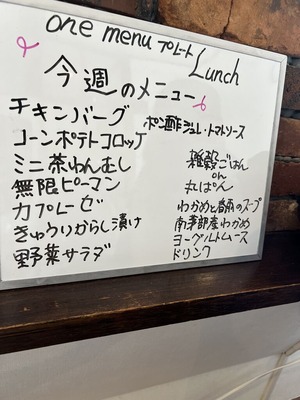 one menu プレート Lunch
今週のメニュー
チキンバーグ
ポン酢ジュレ・トマトソース
コーンポテトコロッケ
ミニ茶わんむし
無限ピーマン
カプレーゼ
きゅうりからし漬け
野菜サラダ
雑穀ごはん
or
丸ぱん
わかめと春雨のスープ
南茅部産わかめ
ヨーグルトムース
ドリンク